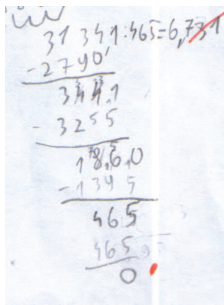 31341,1:465=6,731
-2790,
3441
-3255
186,0
-1395
465
465
0